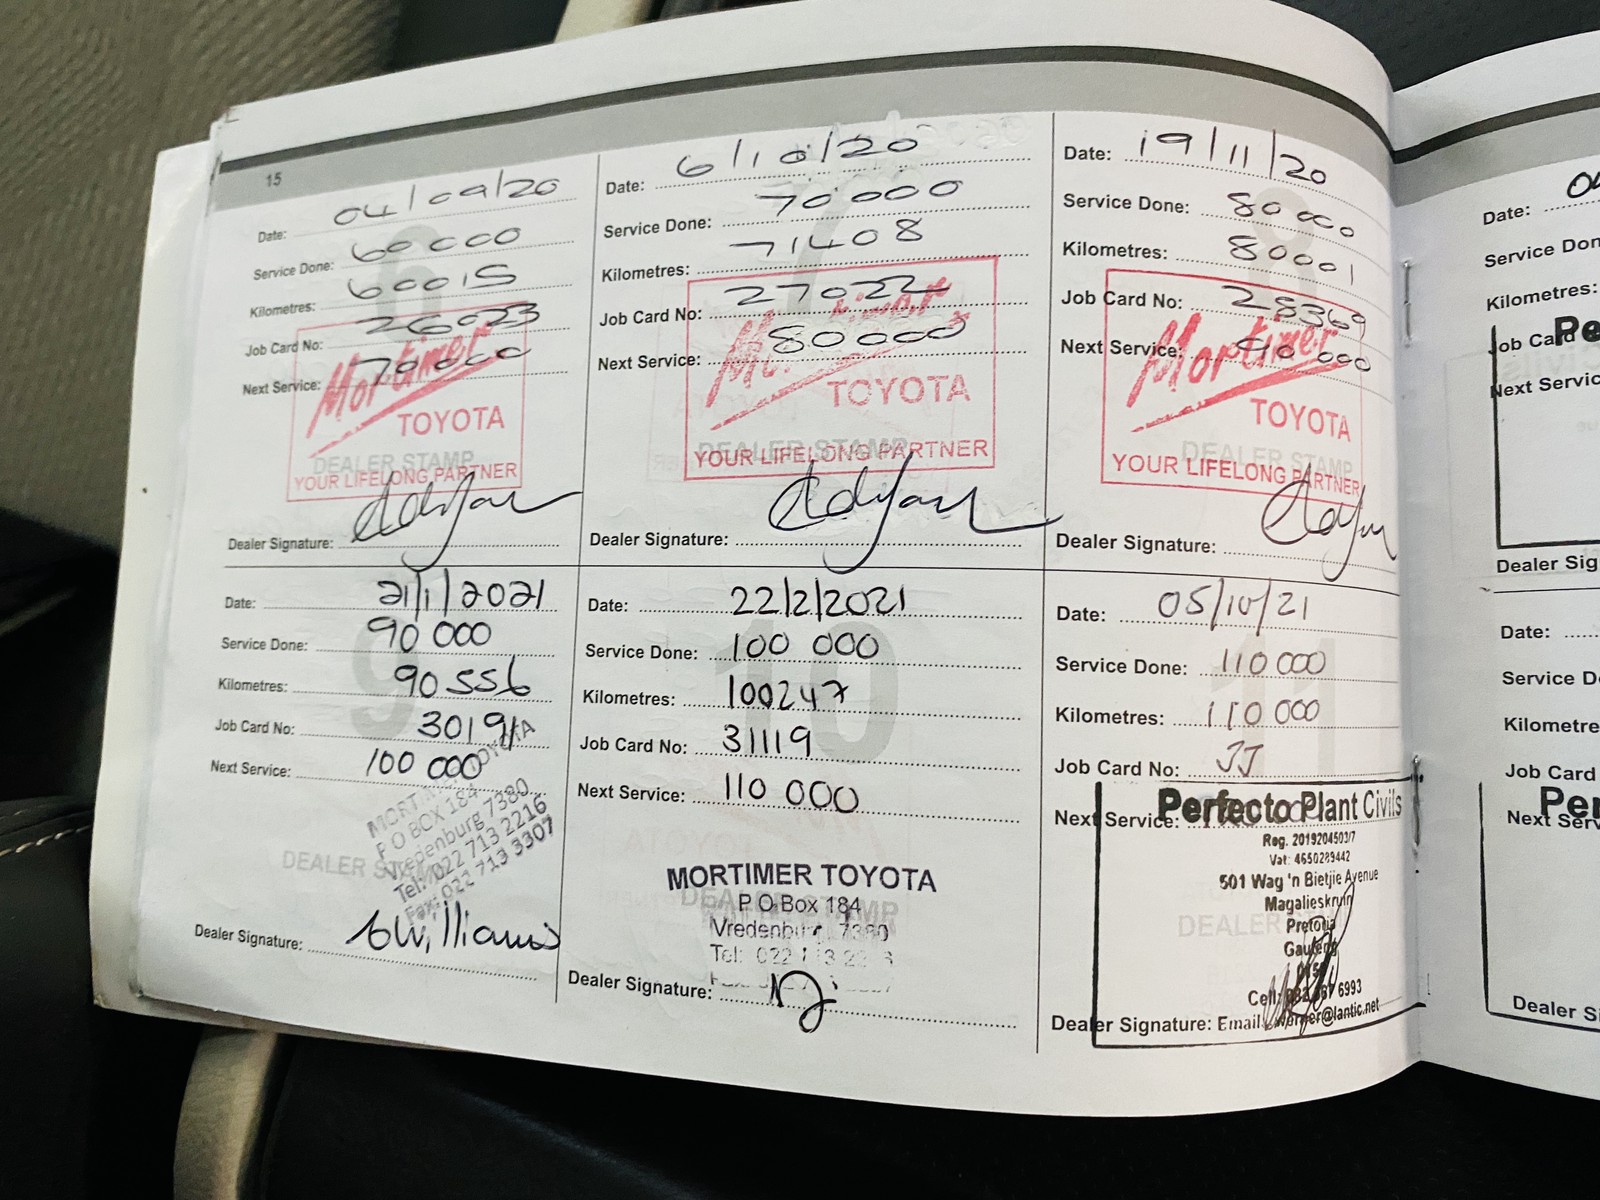 15
Date: 04/09/20
Service Done: 60000
Kilometres: 60015
Job Card No: 26023
Next Service: 70000
Mortimer
TOYOTA
DEALER STAMP
YOUR LIFELONG PARTNER
Dealer Signature:
Date: 6/10/20
Service Done: 70000
Kilometres: 71408
Job Card No: 27022
Next Service: 80000
TOYOTA
DEALER STAMP
YOUR LIFELONG PARTNER
Dealer Signature:
Date: 19/11/20
Service Done: 80000
Kilometres: 80001
Job Card No: 28369
Next Service: 90 000
Mortimer
TOYOTA
DEALER STAMP
YOUR LIFELONG PARTNER
Dealer Signature:
9
Date: 21/1/2021
Service Done: 90 000
Kilometres: 90556
Job Card No: 30191
Next Service: 100 000
MORTIMER TOYOTA
P O BOX 184
Vredenburg 7380
Tel: 022 713 2216
Fax: 022 713 3307
DEALER
Dealer Signature: Williams
10
Date: 22/2/2021
Service Done: 100 000
Kilometres: 100247
Job Card No: 31119
Next Service: 110 000
MORTIMER TOYOTA
DEALER STAMP
P O Box 184
Vredenburg 7380
Tel: 022
Dealer Signature:
11
Date: 05/10/21
Service Done: 110 000
Kilometres: 110 000
Job Card No: JJ
Next Service:
Perfecto Plant Civils
Reg. 2019204503/7
Vat: 4650289442
501 Wag 'n Bietjie Avenue
Magalieskruin
Pretoria
DEALER
Gauteng
Cell: 6993
Dealer Signature: Email
Date: 04
Service Don
Kilometres:
Job Card
Next Servic
Dealer Sig
Date:
Service D
Kilometre
Job Card
Next Serv
Dealer Si